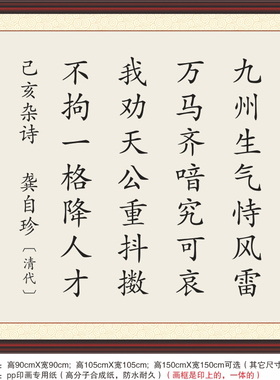 九州生气恃风雷
万马齐喑究可哀
我劝天公重抖擞
不拘一格降人才
己亥杂诗 龚自珍〔清代〕
：高90cmX宽90cm; 高105cmX宽105cm; 高150cmX宽150cm可选（其它尺寸
：pp印画专用纸（高分子合成纸，防水耐久）（画框是印上的，一体的）